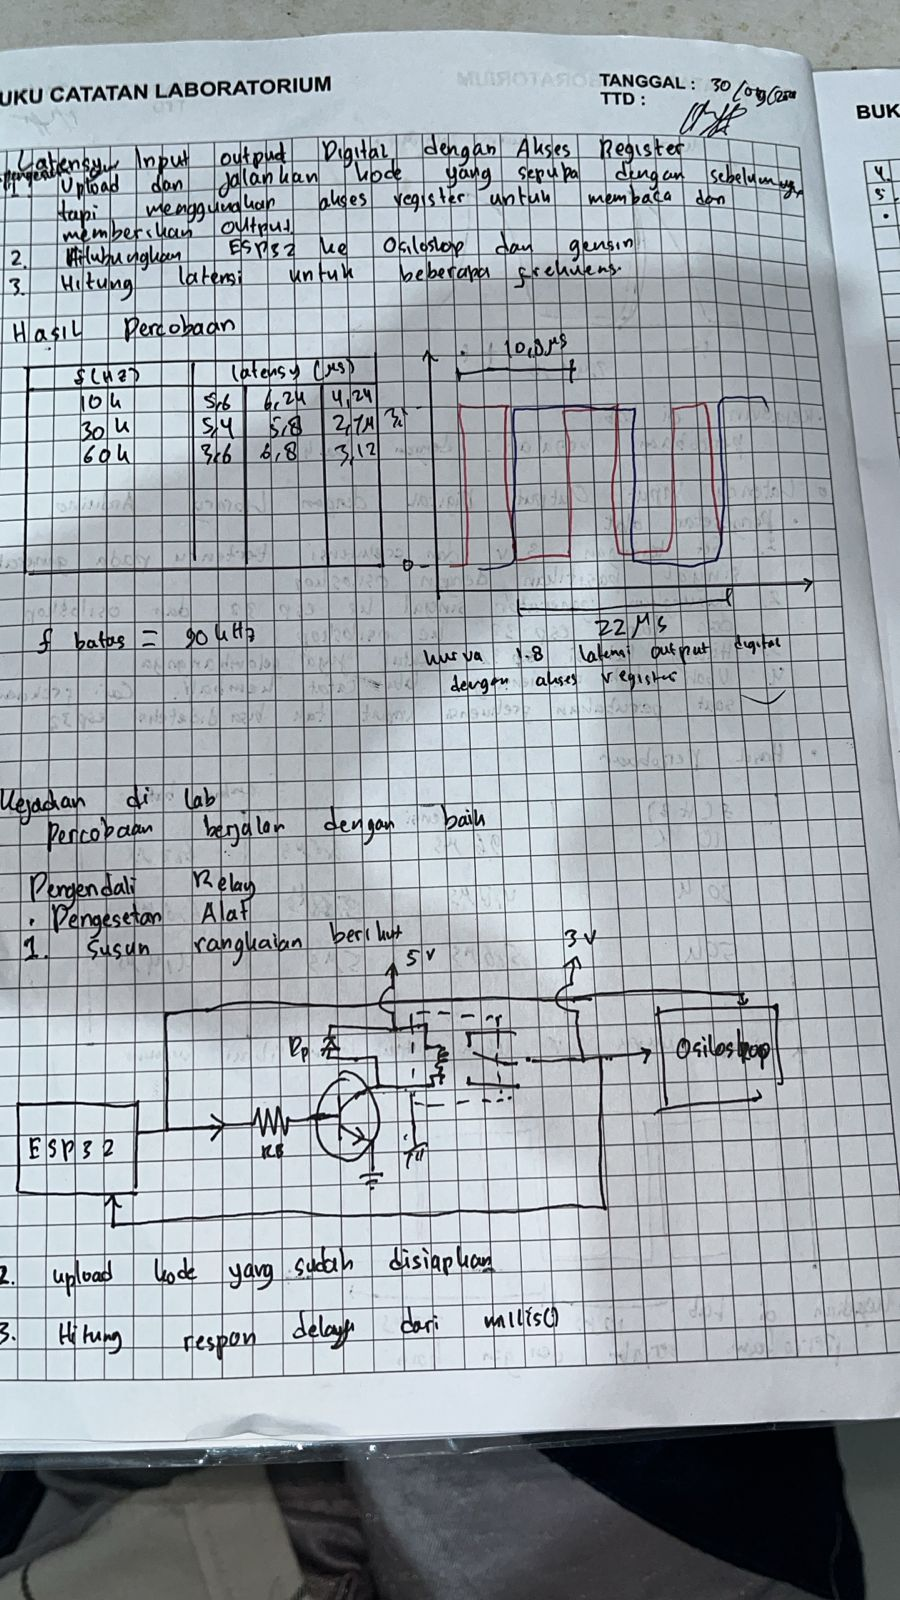 UKU CATATAN LABORATORIUM
TANGGAL : 30
TTD :
BUK
Latensy Input output Digital dengan Akses Register
1. Upload dan jalankan kode yang serupa dengan sebelumnya
tapi menggunakan akses register untuk membaca dan
memberikan output
2. Hubungkan ESP32 ke Osiloskop dan gensin
3. Hitung latensi untuk beberapa frekuensi
Hasil Percobaan
f(Hz) latensy (μs)
10k 5,6 6,24 4,24
30k 5,4 5,8 2,74
60k 3,6 6,8 3,12
10,8 μs
0
22 μs
f batas = 90 kHz
kurva 1.8 latensi output digital
dengan akses register
Kejadian di lab
Percobaan berjalan dengan baik
Pengendali Relay
. Pengesetan Alat
1. Susun rangkaian berikut
5 V
3 V
Osiloskop
ESP32
RB
2. upload kode yang sudah disiapkan
3. Hitung respon delay dari millis()
4.
5